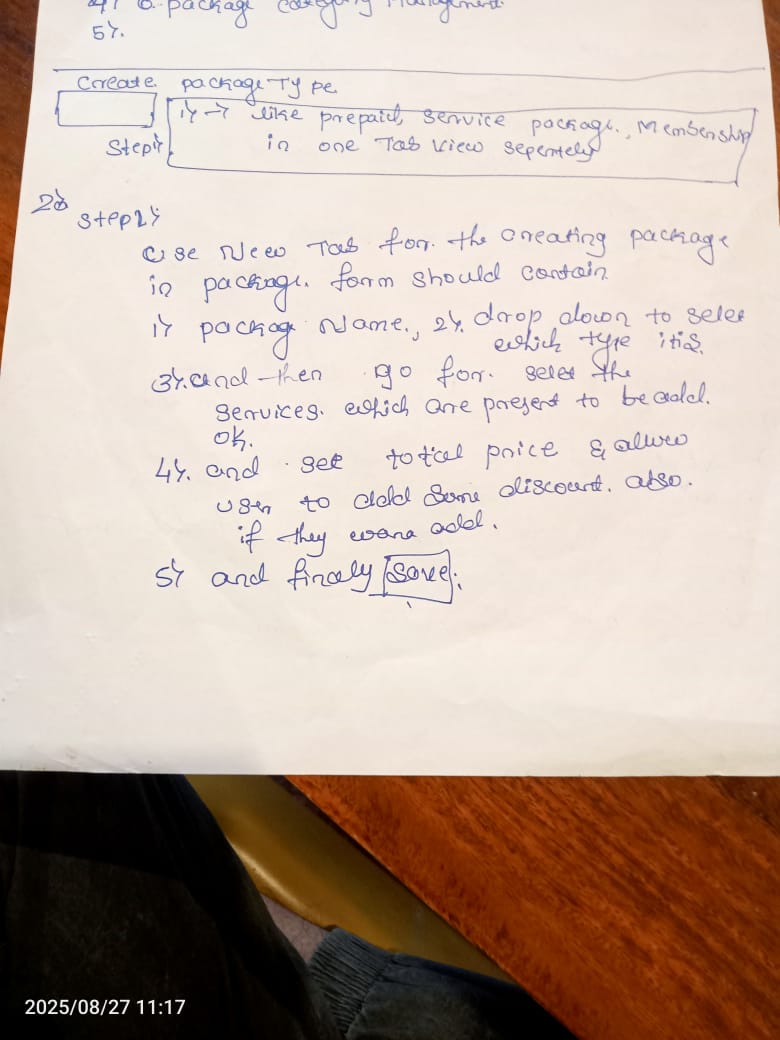 6. package category Management
5).
Create package Type
1) → like prepaid, service package, Membership
Step1) in one Tab view seperntely
2)
step2)
Use New Tab for. the creating package
in package. form should contain
1) package Name., 2). drop down to selec
which type itis.
3). and then go for. selec the
services. which are present to be add.
ok.
4). and set total price & allow
user to add some discount. also.
if they wana add.
5) and finaly save.
2025/08/27 11:17